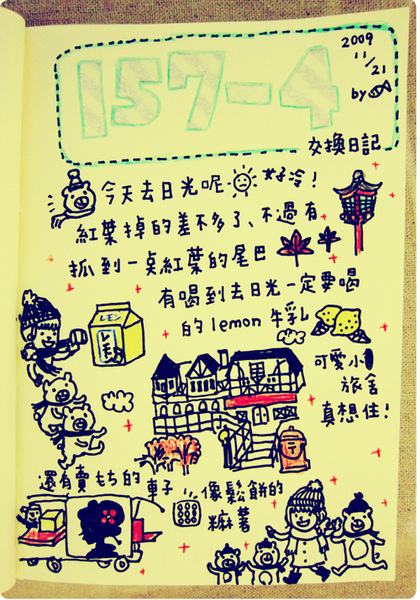 157-4
2009
11/21
by
交換日記
今天去日光呢 好冷!
紅葉掉的差不多了、不過有
抓到一点紅葉的尾巴
有喝到去日光一定要喝
的lemon牛乳
LEM
レモン
可愛小
旅舍
真想住!
還有賣もち的車子
像鬆餅的
麻薯